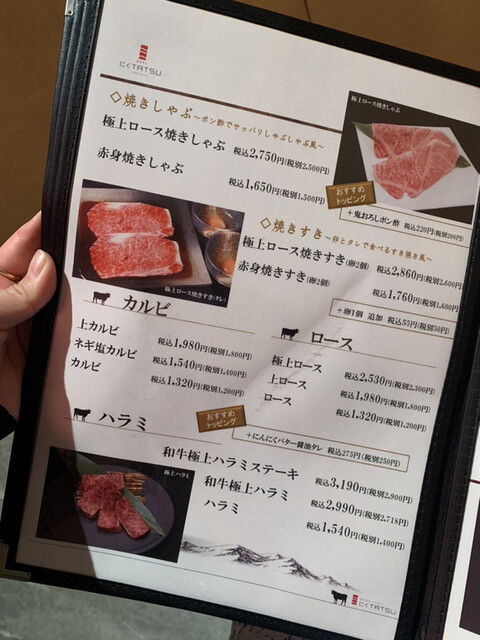 にくTATSU
◇焼きしゃぶ～ポン酢でサッパリしゃぶしゃぶ風～
極上ロース焼きしゃぶ 税込2,750円(税別2,500円)
赤身焼きしゃぶ 税込1,650円(税別1,500円)
極上ロース焼きしゃぶ
おすすめ
トッピング
+鬼おろしポン酢 税込220円(税別200円)
◇焼きすき～卵とタレで食べるすき焼き風～
極上ロース焼きすき(卵2個) 税込2,860円(税別2,600円)
赤身焼きすき(卵2個) 税込1,760円(税別1,600円)
+卵1個 追加 税込55円(税別50円)
極上ロース焼きすき(タレ)
カルビ
上カルビ 税込1,980円(税別1,800円)
ネギ塩カルビ 税込1,540円(税別1,400円)
カルビ 税込1,320円(税別1,200円)
ロース
極上ロース 税込2,530円(税別2,300円)
上ロース 税込1,980円(税別1,800円)
ロース 税込1,320円(税別1,200円)
ハラミ
おすすめ
トッピング
+にんにくバター醤油タレ 税込275円(税別250円)
和牛極上ハラミステーキ 税込3,190円(税別2,900円)
和牛極上ハラミ 税込2,990円(税別2,718円)
ハラミ 税込1,540円(税別1,400円)
極上ハラミ
にくTATSU